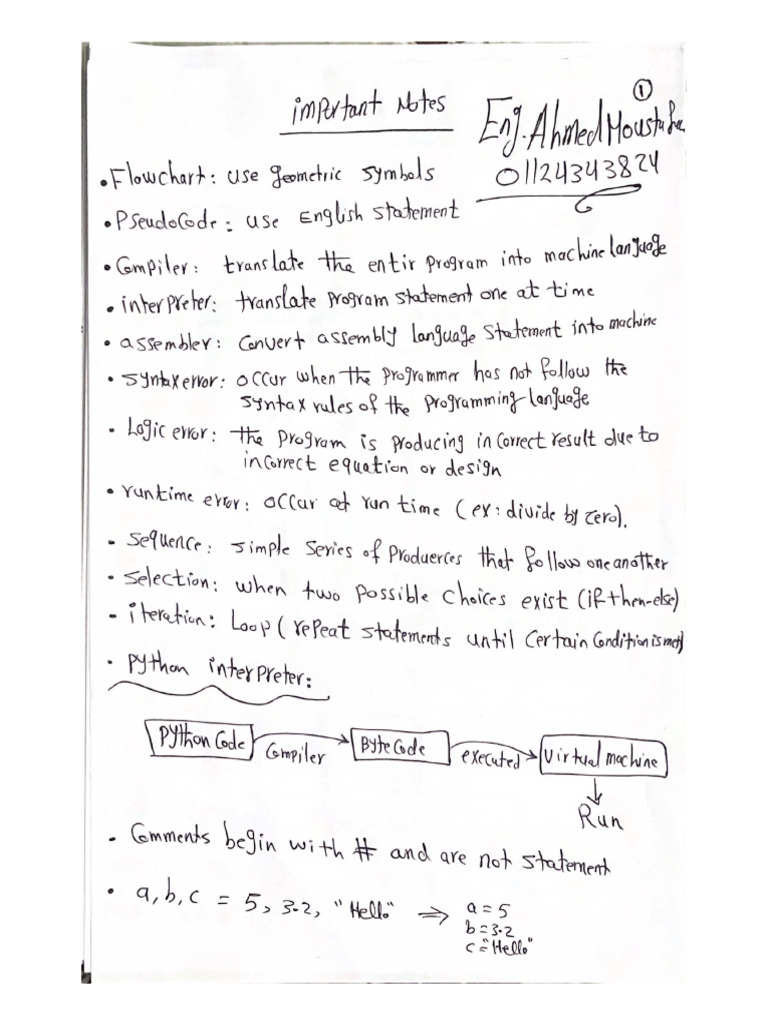 ①
important Notes
Eng. Ahmed Moustafa
01124343824
• Flowchart: use geometric symbols
• Pseudocode: use English statement
• Compiler: translate the entir program into machine language
• interpreter: translate program statement one at time
• assembler: Convert assembly language statement into machine
• syntax error: occur when the programmer has not follow the
syntax rules of the programming language
• Logic error: the program is producing incorrect result due to
incorrect equation or design
• runtime error: occur at run time (ex: divide by zero).
- sequence: simple series of that follow one another
- selection: when two possible choices exist (if then-else)
- iteration: Loop (repeat statements until certain condition is met)
• python interpreter:
Python Code Compiler Byte Code executed Virtual machine
Run
• Comments begin with # and are not statement
• a, b, c = 5, 3.2, "Hello" ⇒ a = 5
b = 3.2
c = "Hello"